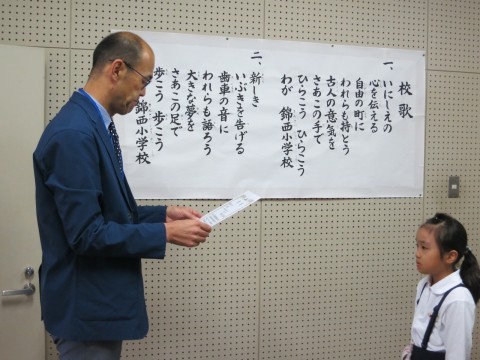 校歌
一、いにしえの
心を伝える
自由の町に
われらも持とう
古人の意気を
さあこの手で
ひらこう　ひらこう
わが　錦西小学校
二、新しき
いぶきを告げる
歯車の音に
われらも語ろう
大きな夢を
さあこの足で
歩こう　歩こう
錦西小学校